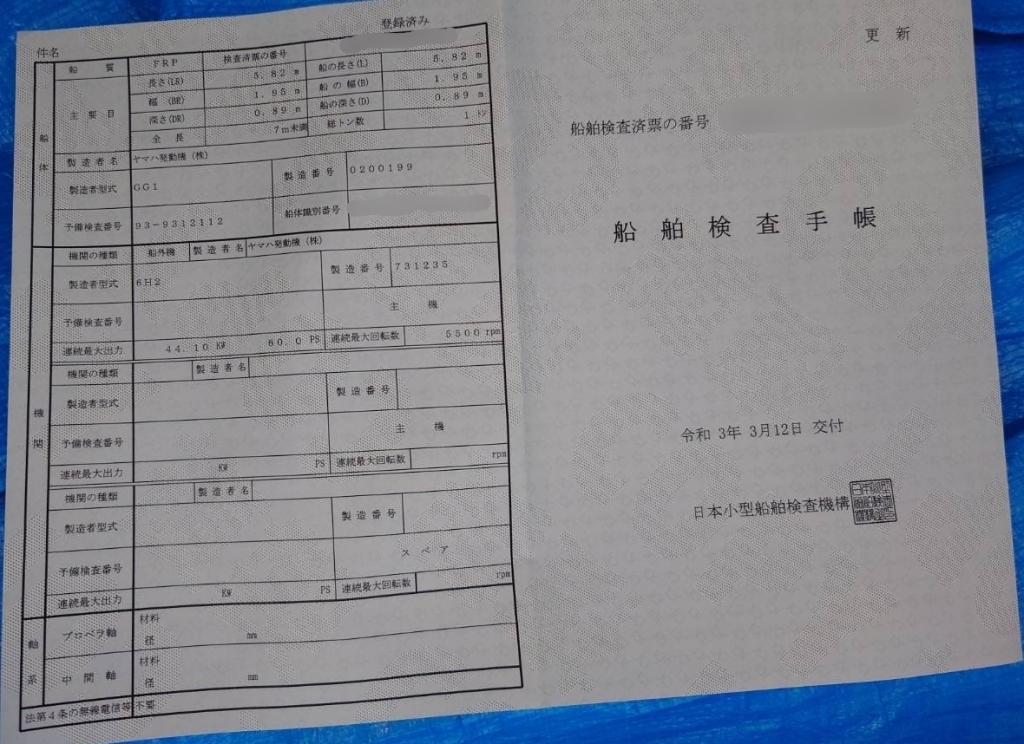 登録済み
件名
船体
主要目
船質 FRP 検査済票の番号
長さ(LR) 5.82 m 船の長さ(L) 5.82 m
幅(BR) 1.95 m 船の幅(B) 1.95 m
深さ(DR) 0.89 m 船の深さ(D) 0.89 m
全長 7m未満 総トン数 1 トン
製造者名 ヤマハ発動機(株)
製造者型式 GG1 製造番号 0200199
予備検査番号 93-9312112 船体識別番号
機関
機関の種類 船外機 製造者名 ヤマハ発動機(株)
製造者型式 6H2 製造番号 731235
予備検査番号 主機
連続最大出力 44.10 KW 60.0 PS 連続最大回転数 5500 rpm
機関の種類 製造者名
製造者型式 製造番号
予備検査番号 主機
連続最大出力 KW PS 連続最大回転数 rpm
機関の種類 製造者名
製造者型式 製造番号
予備検査番号 スペア
連続最大出力 KW PS 連続最大回転数 rpm
軸系
プロペラ軸 材料
径 mm
中間軸 材料
径 mm
法第4条の無線電信等 不要
更新
船舶検査済票の番号
船舶検査手帳
令和 3年 3月12日 交付
日本小型船舶検査機構